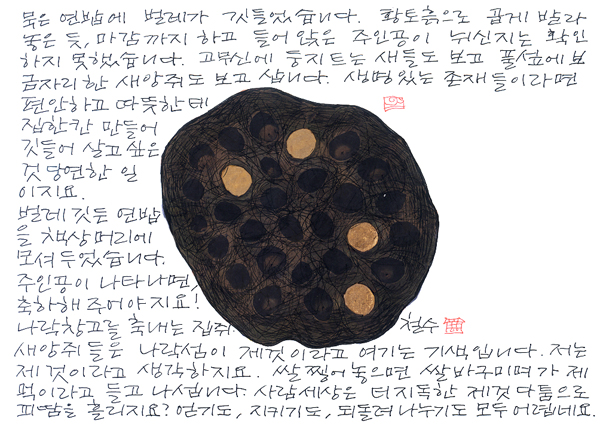 묵은 연밥에 벌레가 깃들었습니다. 황토흙으로 곱게 발라
놓은 듯, 마감까지 하고 들어 앉은 주인공이 뉘신지는 확인
하지 못했습니다. 고무신에 둥지트는 새들도 보고 풀섶에 보
금자리한 새앙쥐도 보고 삽니다. 생명있는 존재들이라면
편안하고 따뜻한 데
집한칸 만들어
깃들어 살고 싶은
것 당연한 일
이지요.
벌레 깃든 연밥
을 책상머리에
모셔 두었습니다.
주인공이 나타나면,
축하해 주어야지요!
나락창고를 축내는 집쥐
철수
새앙쥐들은 나락섬이 제것이라고 여기는 기색입니다. 저는
제것이라고 생각하지요. 쌀 찧어 놓으면 쌀바구미며가 제
먹이라고 들고 나섭니다. 사람세상은 더 지독한 제것 다툼으로
피땀을 흘리지요? 얻기도, 지키기도, 되돌려 나누기도 모두 어렵네요.